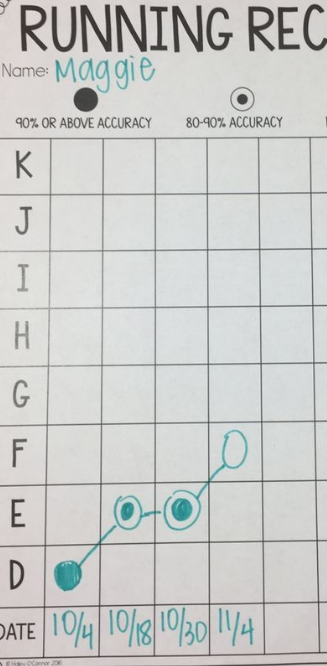 RUNNING REC
Name: Maggie
90% OR ABOVE ACCURACY 80-90% ACCURACY
K
J
I
H
G
F
E
D
DATE 10/4 10/18 10/30 11/4